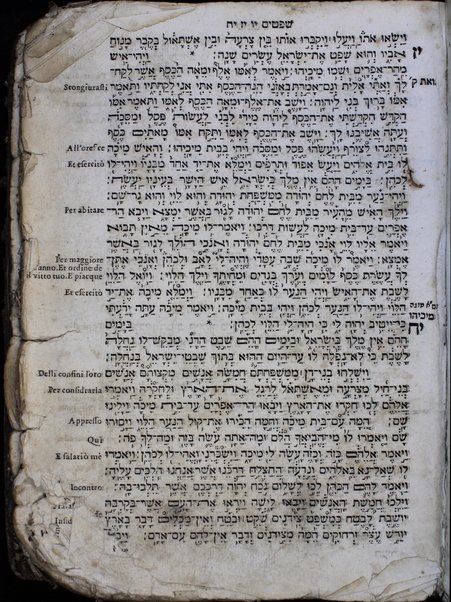 שפטים יו יז יח
וישאו אתו ויעלו ויקברו אותו בין צרעה ובין אשתאול בקבר מנוח
יז
אביו והוא שפט את־ישראל עשרים שנה: ויהי־איש
מהר־אפרים ושמו מיכיהו: ויאמר לאמו אלף ומאה הכסף אשר לקח־
ואת ק׳
Scongiurasti
לך ואתי אלית וגם אמרת באזני הנה־הכסף אתי אני לקחתיו ותאמר
אמו ברוך בני ליהוה: וישב את־אלף־ומאה הכסף לאמו ותאמר אמו
הקדש הקדשתי את־הכסף ליהוה מידי לבני לעשות פסל ומסכה
ועתה אשיבנו לך: וישב את־הכסף לאמו ותקח אמו מאתים כסף
All'orefice
ותתנהו לצורף ויעשהו פסל ומסכה ויהי בבית מיכיהו: והאיש מיכה
Et esercitò
לו בית אלהים ויעש אפוד ותרפים וימלא את־יד אחד מבניו ויהי־לו
לכהן: בימים ההם אין מלך בישראל איש הישר בעיניו יעשה:
ויהי־נער מבית לחם יהודה ממשפחת יהודה והוא לוי והוא גר־שם:
Per abitare
וילך האיש מהעיר מבית לחם יהודה לגור באשר ימצא ויבא הר־
אפרים עד־בית מיכה לעשות דרכו: ויאמר־לו מיכה מאין תבוא
ויאמר אליו לוי אנכי מבית לחם יהודה ואנכי הולך לגור באשר
Per maggiore
אמצא: ויאמר לו מיכה שבה עמדי והיה־לי לאב ולכהן ואנכי אתן־
l'anno. Et ordine de
לך עשרת כסף לימים וערך בגדים ומחיתך וילך הלוי: ויואל הלוי
l vitto tuo. E piacque
לשבת את־האיש ויהי הנער לו כאחד מבניו: וימלא מיכה את־יד
Et esercitò
הלוי ויהי־לו הנער לכהן ויהי בבית מיכה: ויאמר מיכה עתה ידעתי
מיכיהו
יח
כי־ייטיב יהוה לי כי היה־לי הלוי לכהן: בימים
ההם אין מלך בישראל ובימים ההם שבט הדני מבקש־לו נחלה
לשבת כי לא־נפלה לו עד־היום ההוא בתוך שבטי־ישראל בנחלה:
Delli confini loro
וישלחו בני־דן ממשפחתם חמשה אנשים מקצותם אנשים
Per considrarla
בני־חיל מצרעה ומאשתאל לרגל את־הארץ ולחקרה ויאמרו
אלהם לכו חקרו את־הארץ ויבאו הר־אפרים עד־בית מיכה וילינו
Appresso
שם: המה עם־בית מיכה והמה הכירו את־קול הנער הלוי ויסורו
Qui
שם ויאמרו לו מי־הביאך הלם ומה־אתה עשה בזה ומה־לך פה:
E salariò me
ויאמר אלהם כזה וכזה עשה לי מיכה וישכרני ואהי־לו לכהן: ויאמרו
לו שאל־נא באלהים ונדעה התצליח דרכנו אשר אנחנו הלכים עליה:
Incontro
ויאמר להם הכהן לכו לשלום נכח יהוה דרככם אשר תלכו־בה:
וילכו חמשת האנשים ויבאו לישה ויראו את־העם אשר־בקרבה
יושבת לבטח כמשפט צידנים שקט ובטח ואין־מכלים דבר בארץ
יורש עצר ורחוקים המה מצידנים ודבר אין־להם עם־אדם: ויבאו